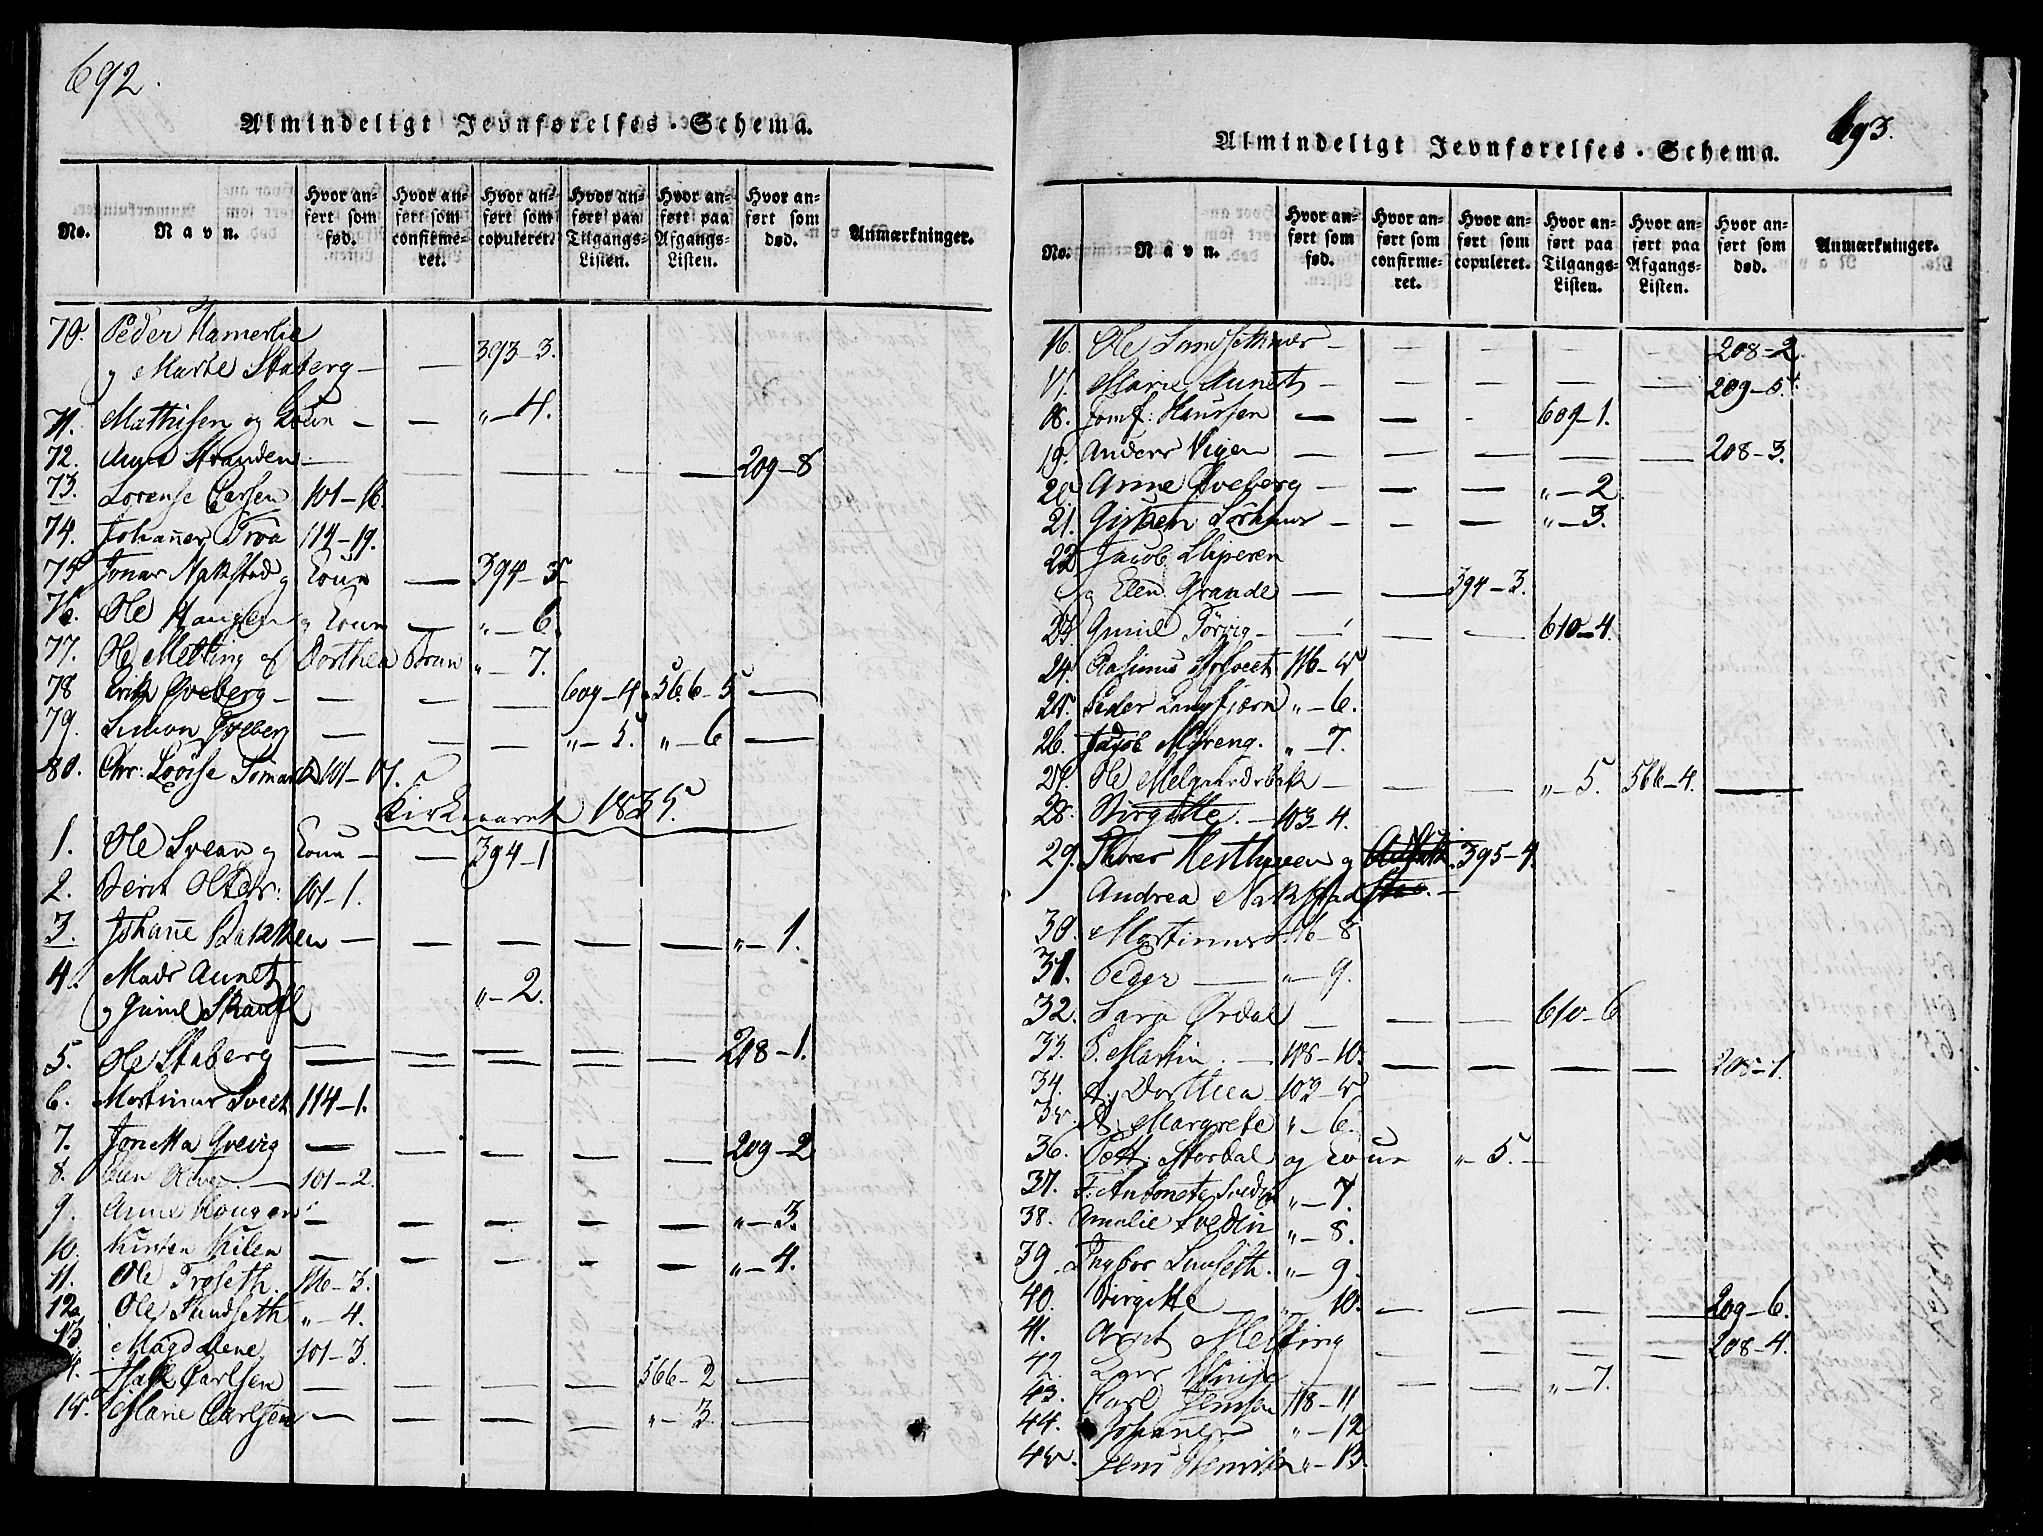 692.
Almindeligt Jevnførelses-Schema.
No. Navn. Hvor anført som fød. Hvor anført som confirmeret. Hvor anført som copuleret. Hvor anført paa Tilgangs-Listen. Hvor anført paa Afgangs-Listen. Hvor anført som død. Anmærkninger.
70. Peder Hamerlie
og Marte Staberg — — 393-3.
71. Mathisen og Koun — — „-4.
72. Stranden — — — — — 209-8
73. Lorense Carlsen 101-16.
74. Johannes Troa 114-19.
75 Jonas Nakstad og Koun — 394-5
76. Ole Haugen og Koun — „-6.
77. Ole Melting og Dorthea Brun „-7.
78 Erik Qveberg — — — 609-4. 566-5 —
79. Simon — — — „-5. „-6 —
80. Chr: Lovise 101-17.
Kirkeaaret 1835.
1. Ole Svean og Koun — — 394-1
2. Berit 101-1.
3. Johanne Bakken — — — — — „-1.
4. Mads Aunet
og Guniel „-2.
5. Ole Staberg — — — — — 208-1.
6. Mortinus Sveet 114-1.
7. Jonetta Qvevig — — — — — 209-2
8. 101-2.
9. Anne Haugen — — — — — „-3.
10. Kirsten Kilen — — — — — „-4.
11. Ole Troseth. 116-3.
12. Ole Sundseth „-4.
13 Magdalene 101-3.
14. Carlsen — — — — 566-2 —
15. Marie Carlsen — — — — „-3 —
693.
Almindeligt Jevnførelses-Schema.
No. Navn. Hvor anført som fød. Hvor anført som confirmeret. Hvor anført som copuleret. Hvor anført paa Tilgangs-Listen. Hvor anført paa Afgangs-Listen. Hvor anført som død. Anmærkninger.
16. Ole — — — — — 208-2
17. Marie Aunet — — — — — 209-5.
18. Jomf: Hanssen — — — 609-1.
19. Anders Vigen — — — — — 208-3.
20. Anne Qveberg — — — „-2
21. — — — „-3.
22 Jacob Sliperen
og Elen Grande — — 394-3.
23. Guniel Tørvig — — — 610-4.
24. Rasimus 116-5
25. Peder „-6.
26. Jacob Møreng. „-7.
27. Ole Melgaardsbak — — — „-5. 566-4. —
28. Birgitte. — 103-4.
29. Hesthagen og 395-4.
Andrea Nakstad
30. Mortinus 116-8
31. Peder — „-9.
32. Sara Ørdal — — — 610-6
33. P. Martin. — 118-10. — — — — 208-1.
34. A. Dorthea 103-5
35 Margrete „-6.
36. Stordal og Koun „-5.
37. Antonete Svedin „-7.
38. Amalie Svedin „-8.
39. Ingbor Sunseth. „-9.
40. Birgitte „10. — — — — 209-6.
41. Arnt Melting — — — — 208-4.
42. Lars Vinje — — „-7.
43. Carl Jensen 118-11
44. Johannes „-12
45. Jens Henrik „-13.